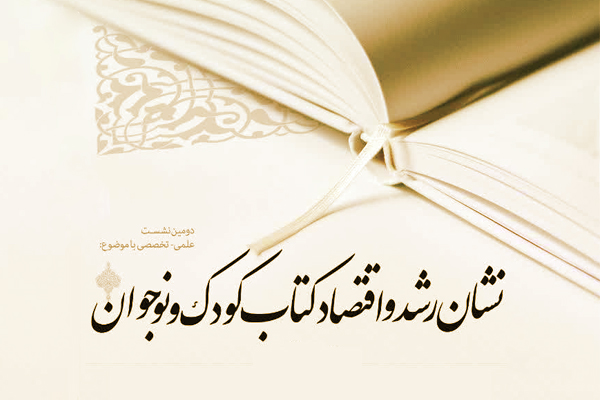 دومین نشست
علمی- تخصصی با موضوع:
نشان رشد و اقتصاد کتاب کودک و نوجوان